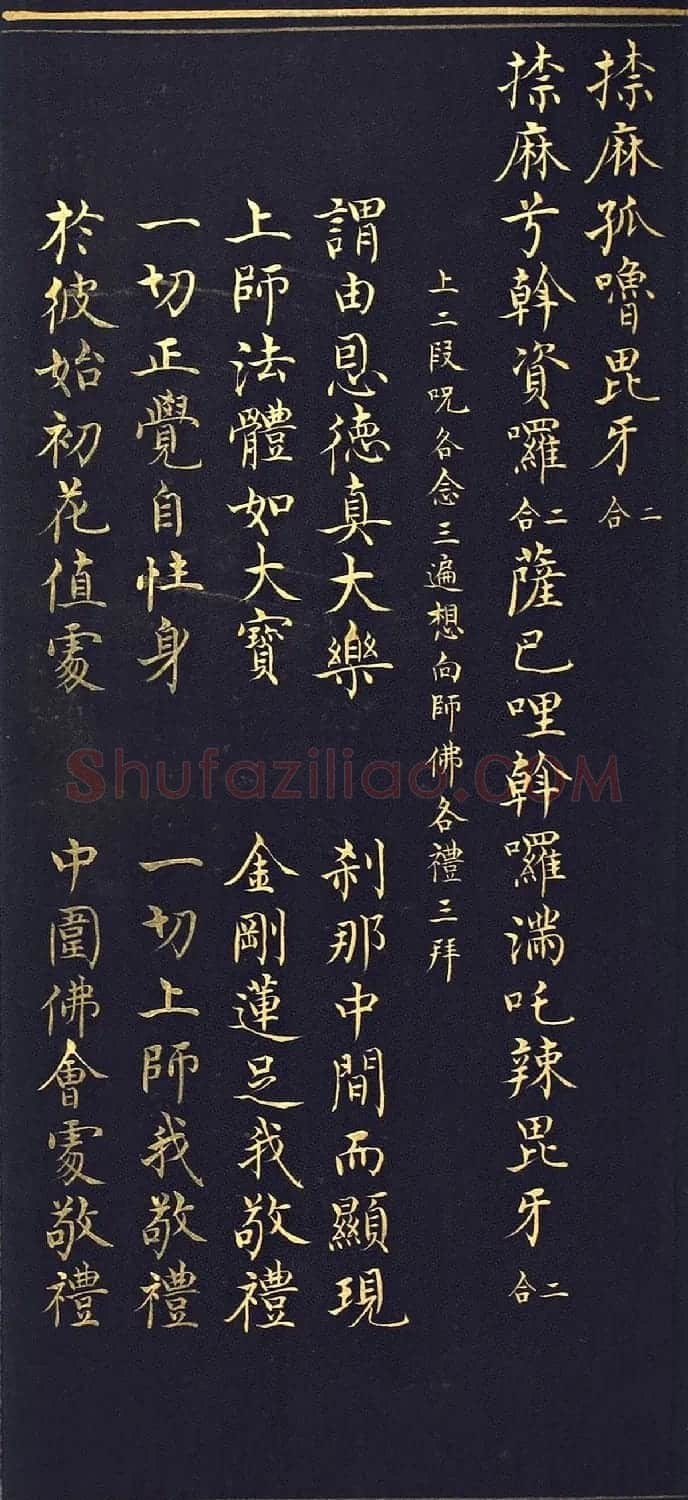 捺麻孤嚕毘牙二合
捺麻兮斡資囉二合薩巴哩斡囉滿吒辣毘牙二合
上二叚呪各念三遍想向師佛各禮三拜
謂由恩德真大樂 刹那中間而顯現
上師法體如大寳 金剛蓮足我敬禮
一切正覺自性身 一切上師我敬禮
於彼始初花值䖏 中圍佛會䖏敬禮
Shufaziliao.COM